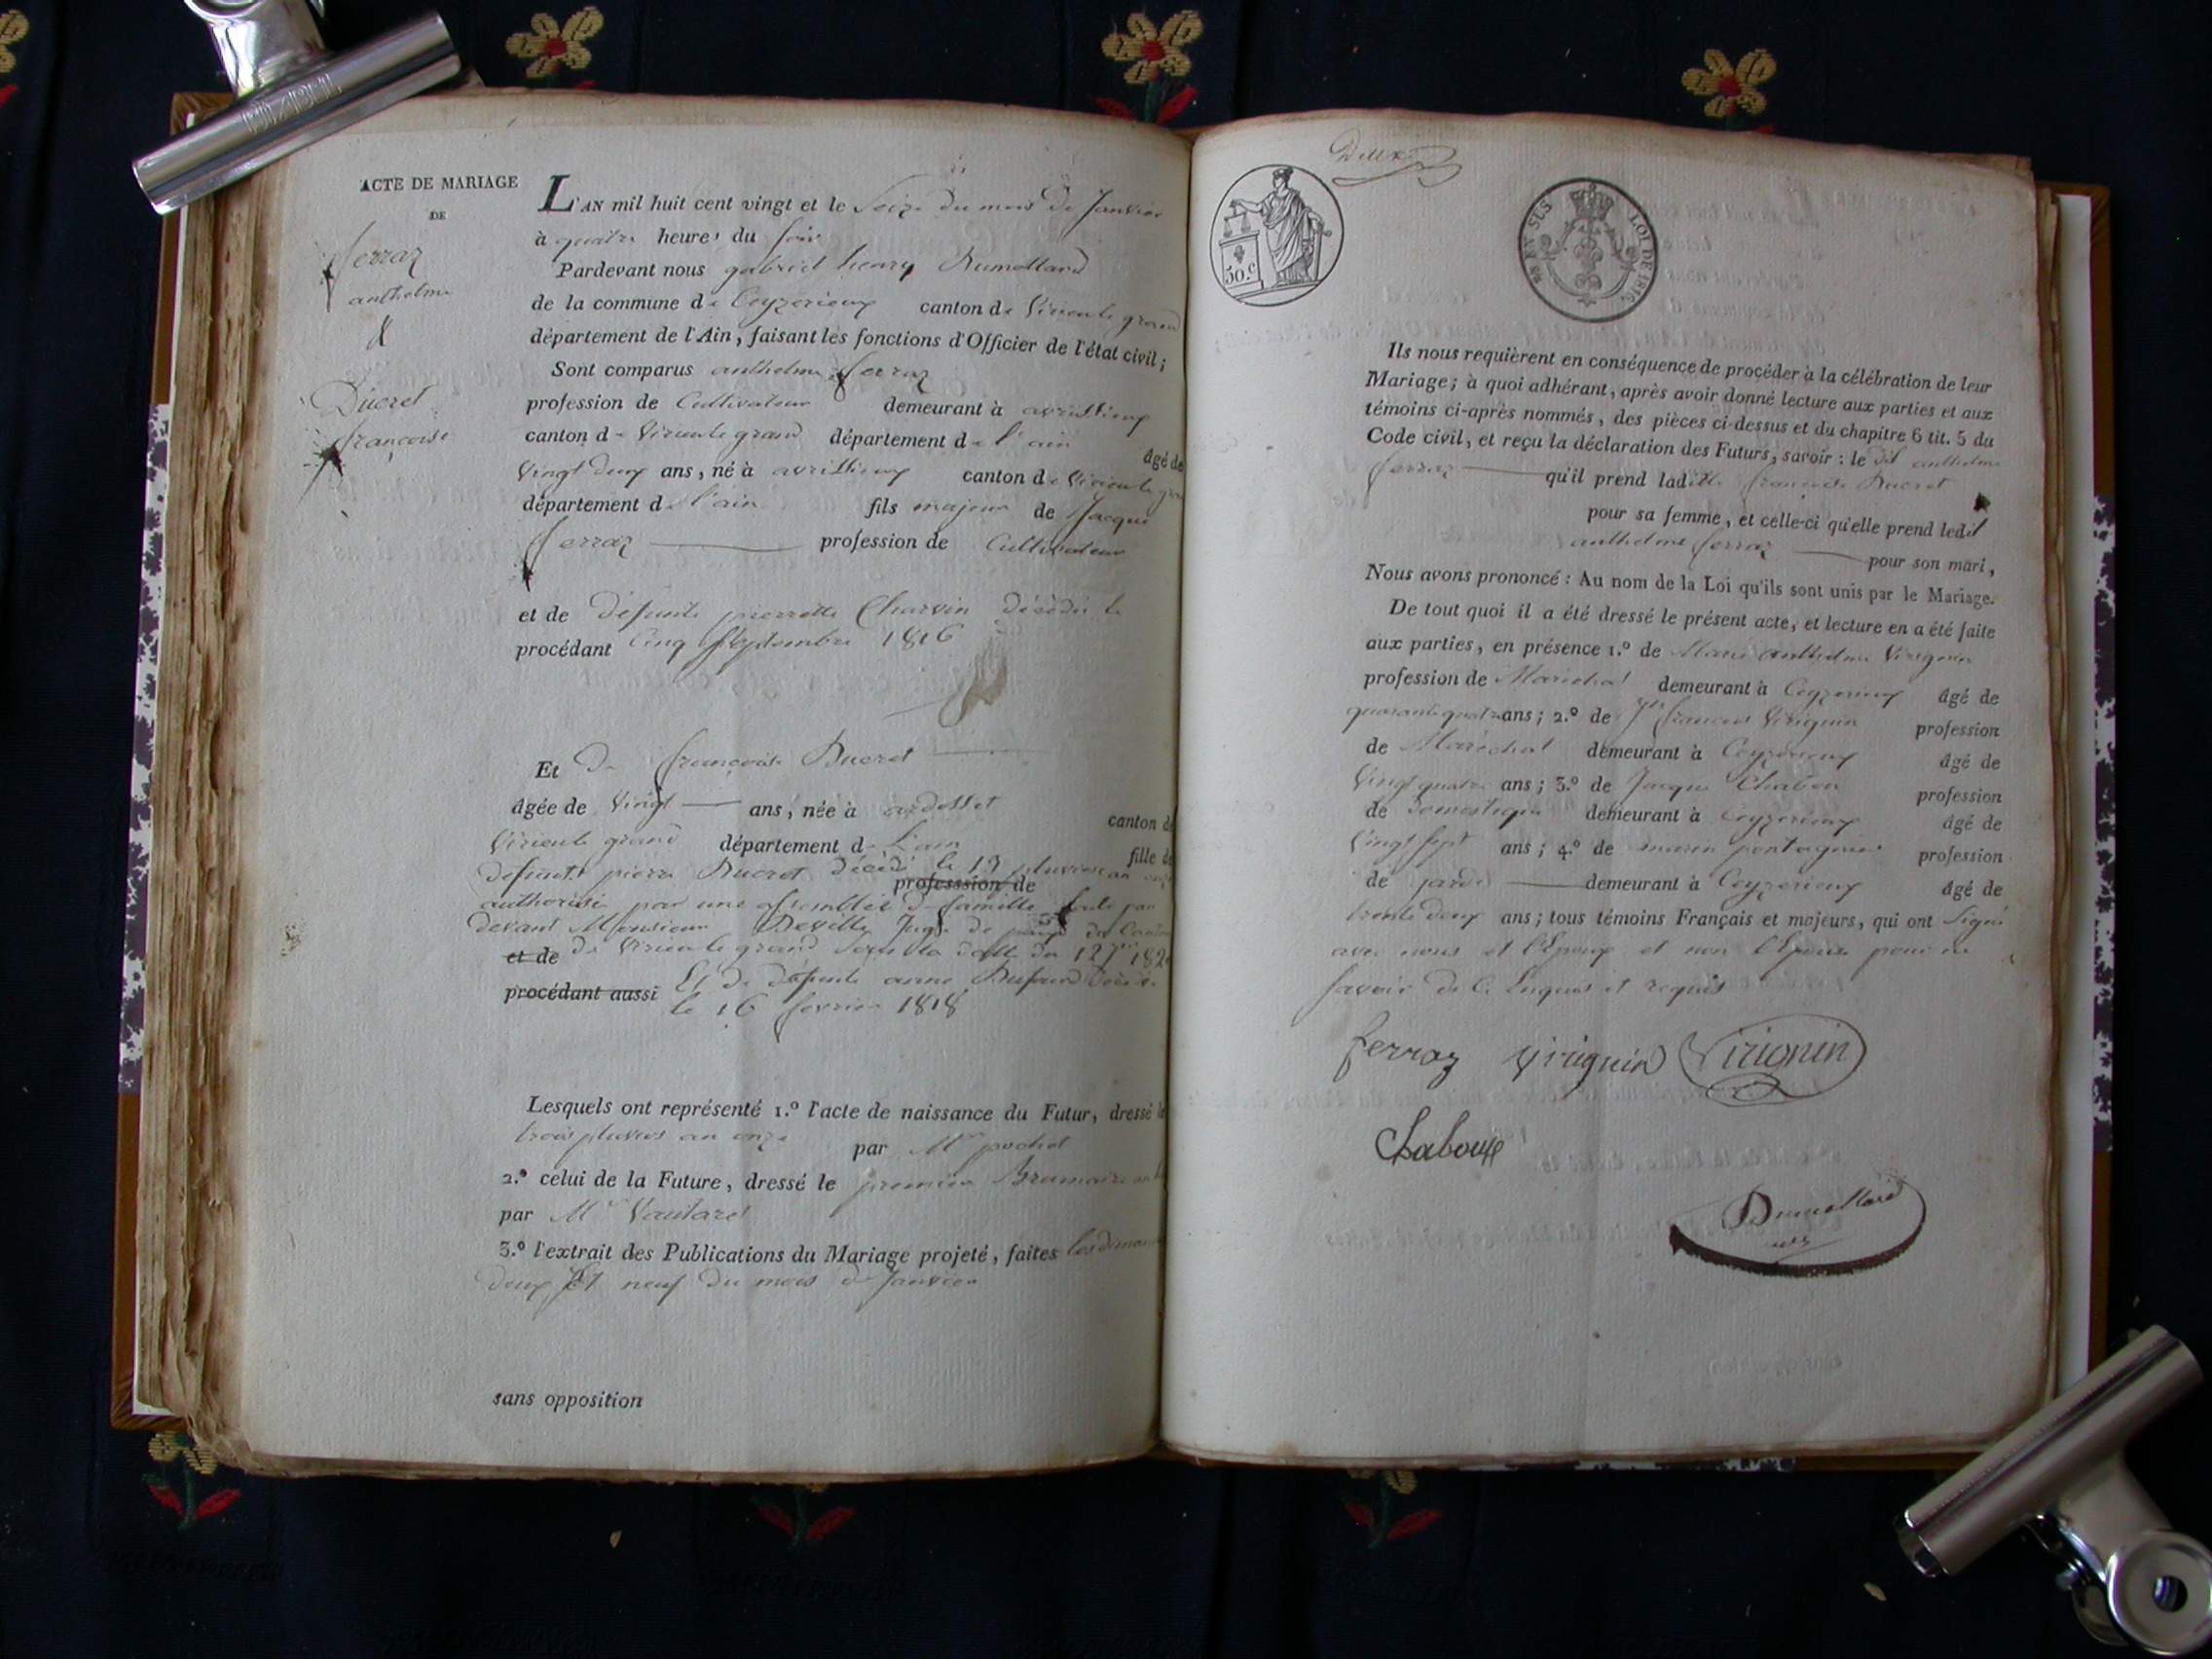 ACTE DE MARIAGE
DE
ferraz
anthelme
&
Ducret
françoise
L'AN mil huit cent vingt et le Seize du mois de Janvier
à quatre heures du soir
Pardevant nous gabriel henry Dumollard
de la commune de Ceyzerieux canton de Virieu le grand
département de l'Ain, faisant les fonctions d'Officier de l'état civil;
Sont comparus anthelme ferraz
profession de Cultivateur demeurant à avrissieux
canton de Virieu le grand département de l'ain âgé de
Vingt deux ans, né à avrissieux canton de Virieu le grand
département de l'ain fils majeur de Jacque
ferraz profession de Cultivateur
et de défunte pierrette Charvin décédée le
procédant Cinq Septembre 1816
Et De françoise Ducret
âgée de Vingt ans, née à ardosset canton de
Virieu le grand département de L'ain fille de
defunt pierre Ducret décédé le 13 pluviose an
professsion de
authorisée par une assemblée de famille par
devant Monsieur Deville Juge de paix du Canton
et de de Virieu le grand sous la datte du 12 Jer 1820
procédant aussi Et de défunte anne décédée
le 16 fevrier 1818
Lesquels ont représenté 1.º l'acte de naissance du Futur, dressé le
trois pluvios an onze par Mr pochet
2.º celui de la Future, dressé le premier Brumaire an
par Mr Vautaret
3.º l'extrait des Publications du Mariage projeté, faites les diman
deux Et neuf du mois de Janvier
sans opposition
Deux
50.c
EN SUS
LOI DE 1816
Ils nous requièrent en conséquence de procéder à la célébration de leur
Mariage; à quoi adhérant, après avoir donné lecture aux parties et aux
témoins ci-après nommés, des pièces ci-dessus et du chapitre 6 tit. 5 du
Code civil, et reçu la déclaration des Futurs, savoir: le dit anthelme
ferraz qu'il prend laditte françoise Ducret
pour sa femme, et celle-ci qu'elle prend ledit
anthelme ferraz pour son mari,
Nous avons prononcé: Au nom de la Loi qu'ils sont unis par le Mariage.
De tout quoi il a été dressé le présent acte, et lecture en a été faite
aux parties, en présence 1.º de Marie anthelme Virignin
profession de Maréchal demeurant à Ceyzerieux âgé de
quarante quatre ans; 2.º de francois Virignin profession
de Maréchal demeurant à Ceyzerieux âgé de
Vingt quatre ans; 3.º de Jacque Chaboux profession
de Domestique demeurant à Ceyzerieux âgé de
Vingt sept ans; 4.º de profession
de garde demeurant à Ceyzerieux âgé de
trente deux ans; tous témoins Français et majeurs, qui ont Signé
avec nous et l'Epoux et non l'Epouse pour ne
savoir de ce Enquis et requis
ferraz Virignin Virignin
Chaboux
Dumollard